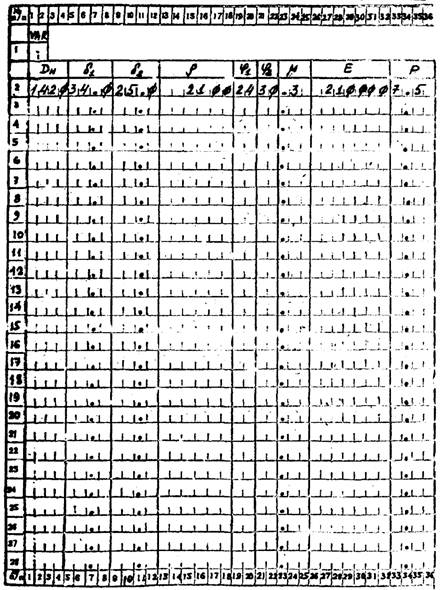 № п/п 1 2 3 4 5 6 7 8 9 10 11 12 13 14 15 16 17 18 19 20 21 22 23 24 25 26 27 28 29 30 31 32 33 34 35 36
VAR
1 i
Dн δ₁ δ₂ ρ φ₁ φ₂ μ E P
2 1420 34.0 25.0 2100 24 30 .3 210000 7.5
3
4
5
6
7
8
9
10
11
12
13
14
15
16
17
18
19
20
21
22
23
24
25
26
27
28
1 2 3 4 5 6 7 8 9 10 11 12 13 14 15 16 17 18 19 20 21 22 23 24 25 26 27 28 29 30 31 32 33 34 35 36